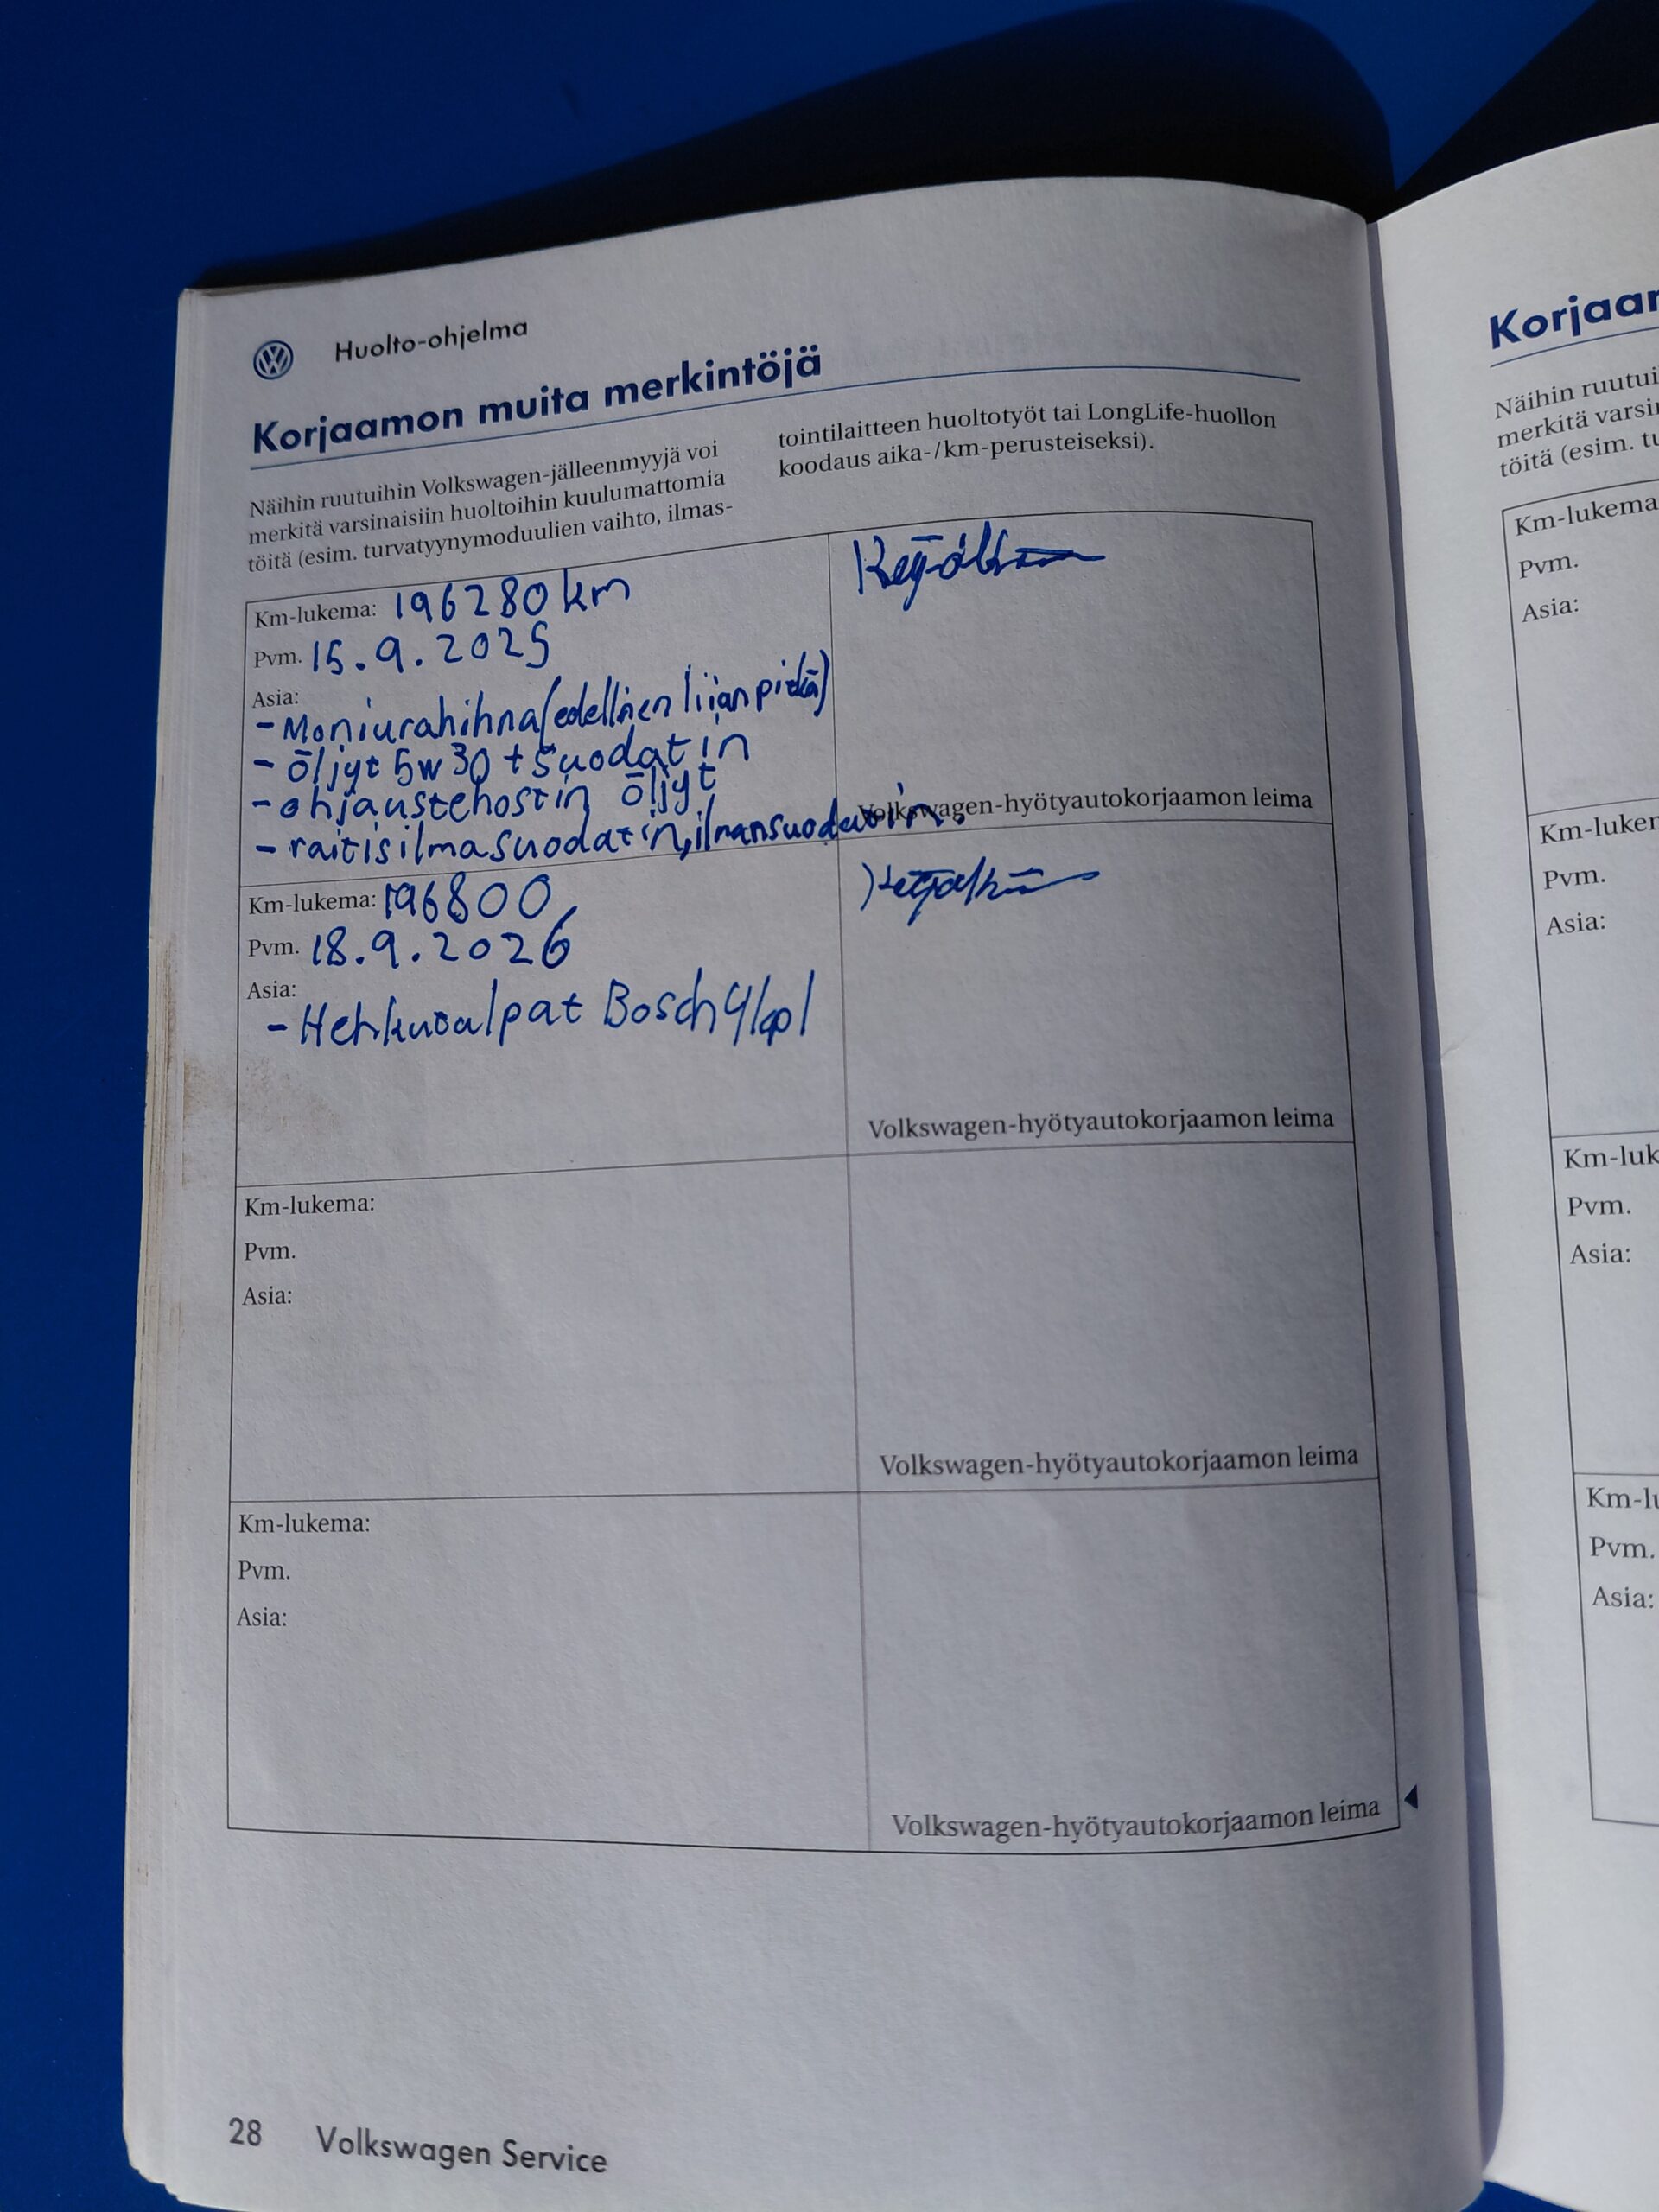 Huolto-ohjelma
Korjaamon muita merkintöjä
Näihin ruutuihin Volkswagen-jälleenmyyjä voi
merkitä varsinaisiin huoltoihin kuulumattomia
töitä (esim. turvatyynymoduulien vaihto, ilmas-
tointilaitteen huoltotyöt tai LongLife-huollon
koodaus aika-/km-perusteiseksi).
Km-lukema: 196280 km
Pvm. 15.9.2025
Asia:
- Moniurahihna (edellinen liian pitkä)
- öljyt 5w30 + suodatin
- ohjaustehostin öljyt
- raitisilmasuodatin, ilmansuodatin.
Volkswagen-hyötyautokorjaamon leima
Km-lukema: 196800
Pvm. 18.9.2026
Asia:
- Hehkutulpat Bosch 4kpl
Volkswagen-hyötyautokorjaamon leima
Km-lukema:
Pvm.
Asia:
Volkswagen-hyötyautokorjaamon leima
Km-lukema:
Pvm.
Asia:
Volkswagen-hyötyautokorjaamon leima
28 Volkswagen Service
Korjaam
Näihin ruutui
merkitä varsi
töitä (esim. tu
Km-lukema
Pvm.
Asia:
Km-luker
Pvm.
Asia:
Km-luk
Pvm.
Asia:
Km-lu
Pvm.
Asia: